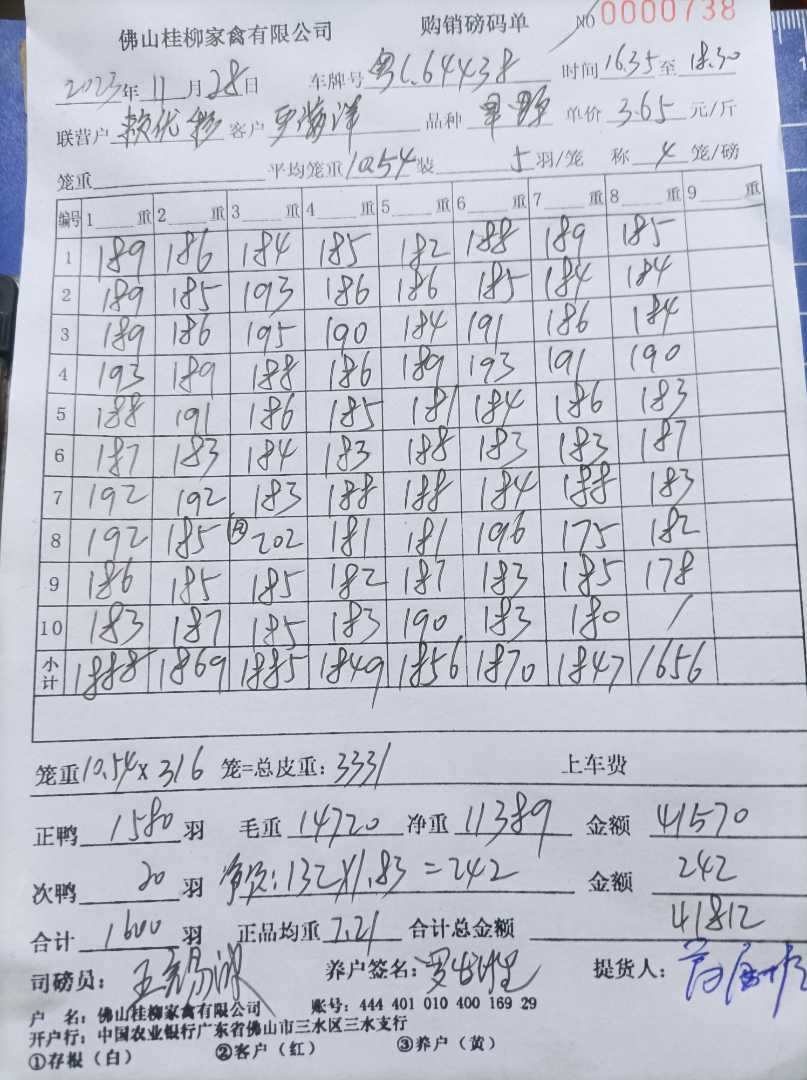 佛山桂柳家禽有限公司 购销磅码单 NO 0000738
2023年 11 月 28日 车牌号 粤L.64438 时间 16.35 至 18.30
联营户 客户 品种 单价 3.65 元/斤
笼重 平均笼重 10.54 装 5 羽/笼 称 4 笼/磅
编号 1 重 2 重 3 重 4 重 5 重 6 重 7 重 8 重 9 重
1 189 186 184 185 182 188 189 185
2 189 185 193 186 186 185 184 184
3 189 186 195 190 184 191 186 184
4 193 189 188 186 189 193 191 190
5 188 191 186 185 181 184 186 183
6 187 183 184 183 188 183 183 187
7 192 192 183 188 188 184 188 183
8 192 185 202 181 181 196 175 182
9 186 185 185 182 187 183 185 178
10 183 187 185 183 190 183 180 /
小计 1888 1869 1885 1849 1856 1870 1847 1656
笼重 10.54 x 316 笼=总皮重: 3331 上车费
正鸭 1580 羽 毛重 14720 净重 11389 金额 41570
次鸭 20 羽 净次: 132 X 1.83 = 242 金额 242
合计 1600 羽 正品均重 7.21 合计总金额 41812
司磅员: 养户签名: 提货人:
户 名: 佛山桂柳家禽有限公司 账号: 444 401 010 400 169 29
开户行: 中国农业银行广东省佛山市三水区三水支行
①存根(白) ②客户(红) ③养户(黄)